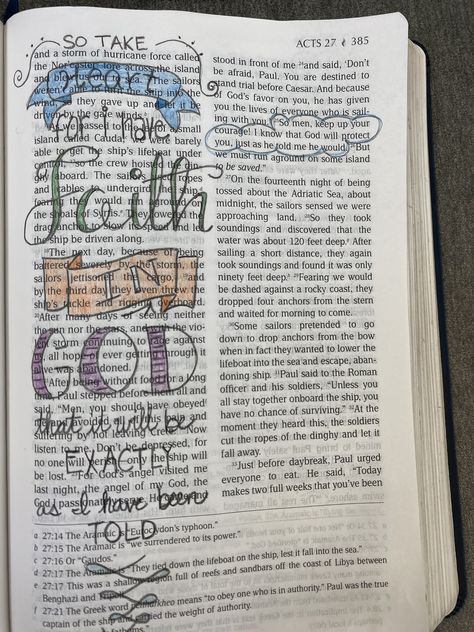 ACTS 27 385
SO TAKE
HEART
for I have
faith
IN
GOD
that it will be
EXACTLY
as I have been
TOLD
and a storm of hurricane force called
the Nor'easter tore across the island
and out to sea. The sailors
the ship into the
wind, they gave up and let it be
driven by the gale winds.
passed to the of a small
island called Cauda, we were barely
able to get the ship's lifeboat under
control, so the crew hoisted
board. The sailors
and cables
the ship
of Syrtis. lowered the
drag anchor to slow its speed and let
the ship be driven along.
The next day, because of being
battered severely by the storm, the
sailors jettisoned the cargo, and
by the third day they even
ship's tackle and rigging
After many days of seeing neither
the sun nor the stars, and the
continuing to against
all hope of ever getting through it
abandoned.
After being without food for a long
time, Paul stepped before them all and
said, "Men, you should have obeyed
this pain and
suffering by not leaving Crete. Now
listen to Don't be depressed, for
no one will perish—only the ship will
be lost. For God's angel visited me
last night, the angel of my God, the
God I passionately serve. He
stood in front of me 24and said, 'Don't
be afraid, Paul. You are destined to
stand trial before Caesar. And because
of God's favor on you, he has given
you the lives of everyone who is sail-
ing with you.' 25So men, keep up your
courage! I know that God will protect
you, just as he told me he would. 26But
we must run aground on some island
to be saved."
27On the fourteenth night of being
tossed about the Adriatic Sea, about
midnight, the sailors sensed we were
approaching land. 28So they took
soundings and discovered that the
water was about 120 feet deep. After
sailing a short distance, they again
took soundings and found it was only
ninety feet deep. 29Fearing we would
be dashed against a rocky coast, they
dropped four anchors from the stern
and waited for morning to come.
30Some sailors pretended to go
down to drop anchors from the bow
when in fact they wanted to lower the
lifeboat into the sea and escape, aban-
doning ship. 31Paul said to the Roman
officer and his soldiers, "Unless you
all stay together onboard the ship, you
have no chance of surviving." 32At the
moment they heard this, the soldiers
cut the ropes of the dinghy and let it
fall away.
33Just before daybreak, Paul urged
everyone to eat. He said, "Today
makes two full weeks that you've been
a 27:14 The Aramaic is "Euroclydon's typhoon."
b 27:15 The Aramaic is "we surrendered to its power."
c 27:16 Or "Gaudos."
d 27:17 The Aramaic is "They tied down the lifeboat on the ship, lest it fall into the sea."
e 27:17 This was a shallow region full of reefs and sandbars off the coast of Libya between
Benghazi and Tripoli.
f 27:21 The Greek word peitharkheo means "to obey one who is in authority." Paul was the true
captain of the ship and carried the weight of authority.
fathoms."